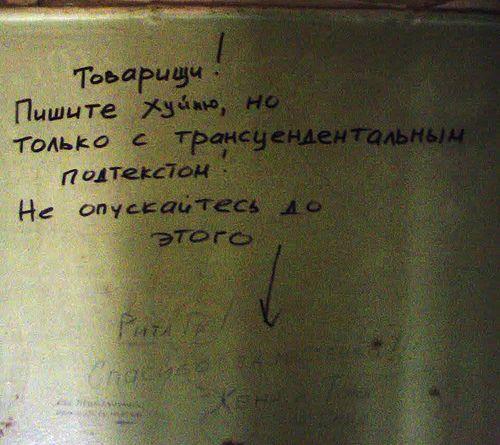 Товарищи!
Пишите хуйню, но
только с трансцендентальным
подтекстом!
Не опускайтесь до
этого
Рита
Спасибо
Женя